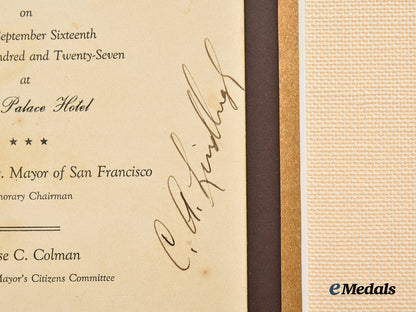 on
September Sixteenth
Hundred and Twenty-Seven
at
Palace Hotel
***
. Mayor of San Francisco
onorary Chairman
se C. Colman
Mayor's Citizens Committee
C. A. Lindbergh
eMedals